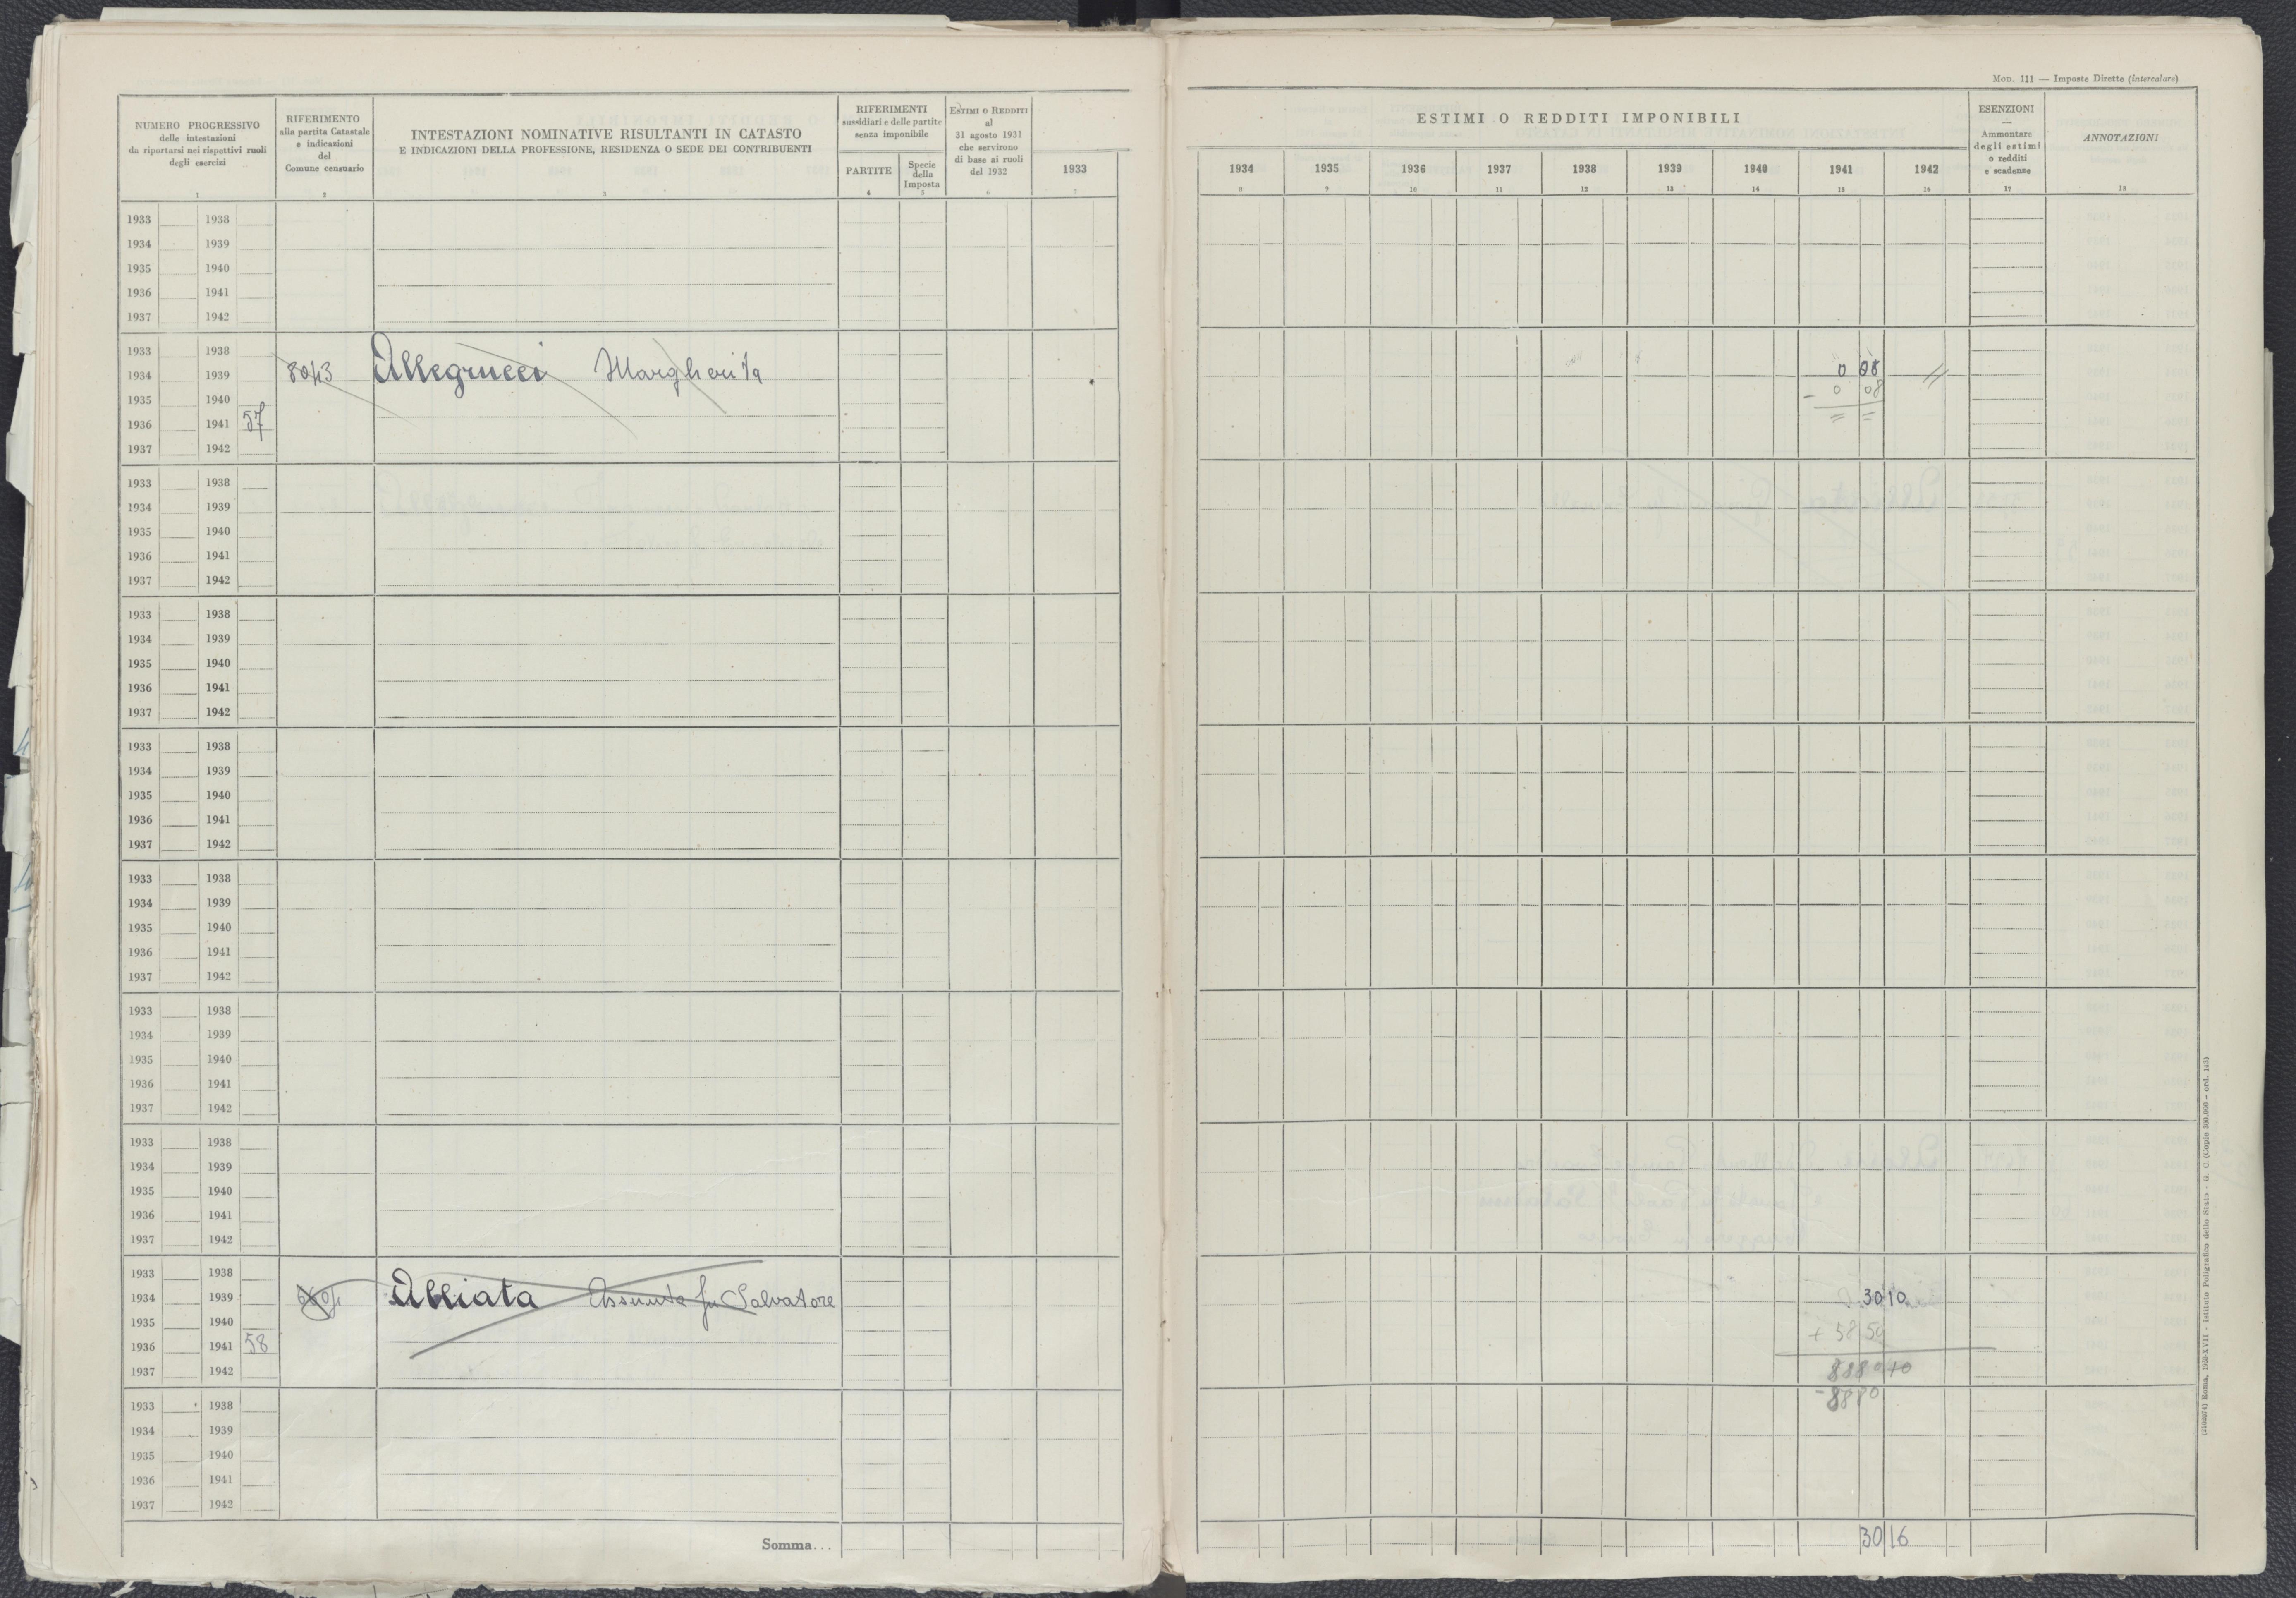 MOD. 111 — Imposte Dirette (intercalare)
NUMERO PROGRESSIVO
delle intestazioni
da riportarsi nei rispettivi ruoli
degli esercizi
1
RIFERIMENTO
alla partita Catastale
e indicazioni
del
Comune censuario
2
INTESTAZIONI NOMINATIVE RISULTANTI IN CATASTO
E INDICAZIONI DELLA PROFESSIONE, RESIDENZA O SEDE DEI CONTRIBUENTI
3
RIFERIMENTI
sussidiari e delle partite
senza imponibile
PARTITE
4
Specie
della
Imposta
5
ESTIMI O REDDITI
al
31 agosto 1931
che servirono
di base ai ruoli
del 1932
6
1933
7
ESTIMI O REDDITI IMPONIBILI
1934 1935 1936 1937 1938 1939 1940 1941 1942
8 9 10 11 12 13 14 15 16
ESENZIONI
—
Ammontare
degli estimi
o redditi
e scadenze
17
ANNOTAZIONI
18
1933 1938
1934 1939
1935 1940
1936 1941
1937 1942
1933 1938
1934 1939 8043 Allegrucci Margherita 0 08 //
1935 1940 - 0 08
1936 1941 57 = =
1937 1942
1933 1938
1934 1939
1935 1940
1936 1941
1937 1942
1933 1938
1934 1939
1935 1940
1936 1941
1937 1942
1933 1938
1934 1939
1935 1940
1936 1941
1937 1942
1933 1938
1934 1939
1935 1940
1936 1941
1937 1942
1933 1938
1934 1939
1935 1940
1936 1941
1937 1942
1933 1938
1934 1939
1935 1940
1936 1941
1937 1942
1933 1938
1934 1939 Alliata Assunta fu Salvatore 30 10
1935 1940
1936 1941 58 + 58 50
1937 1942
1933 1938
1934 1939
1935 1940
1936 1941
1937 1942
Somma... 30 16